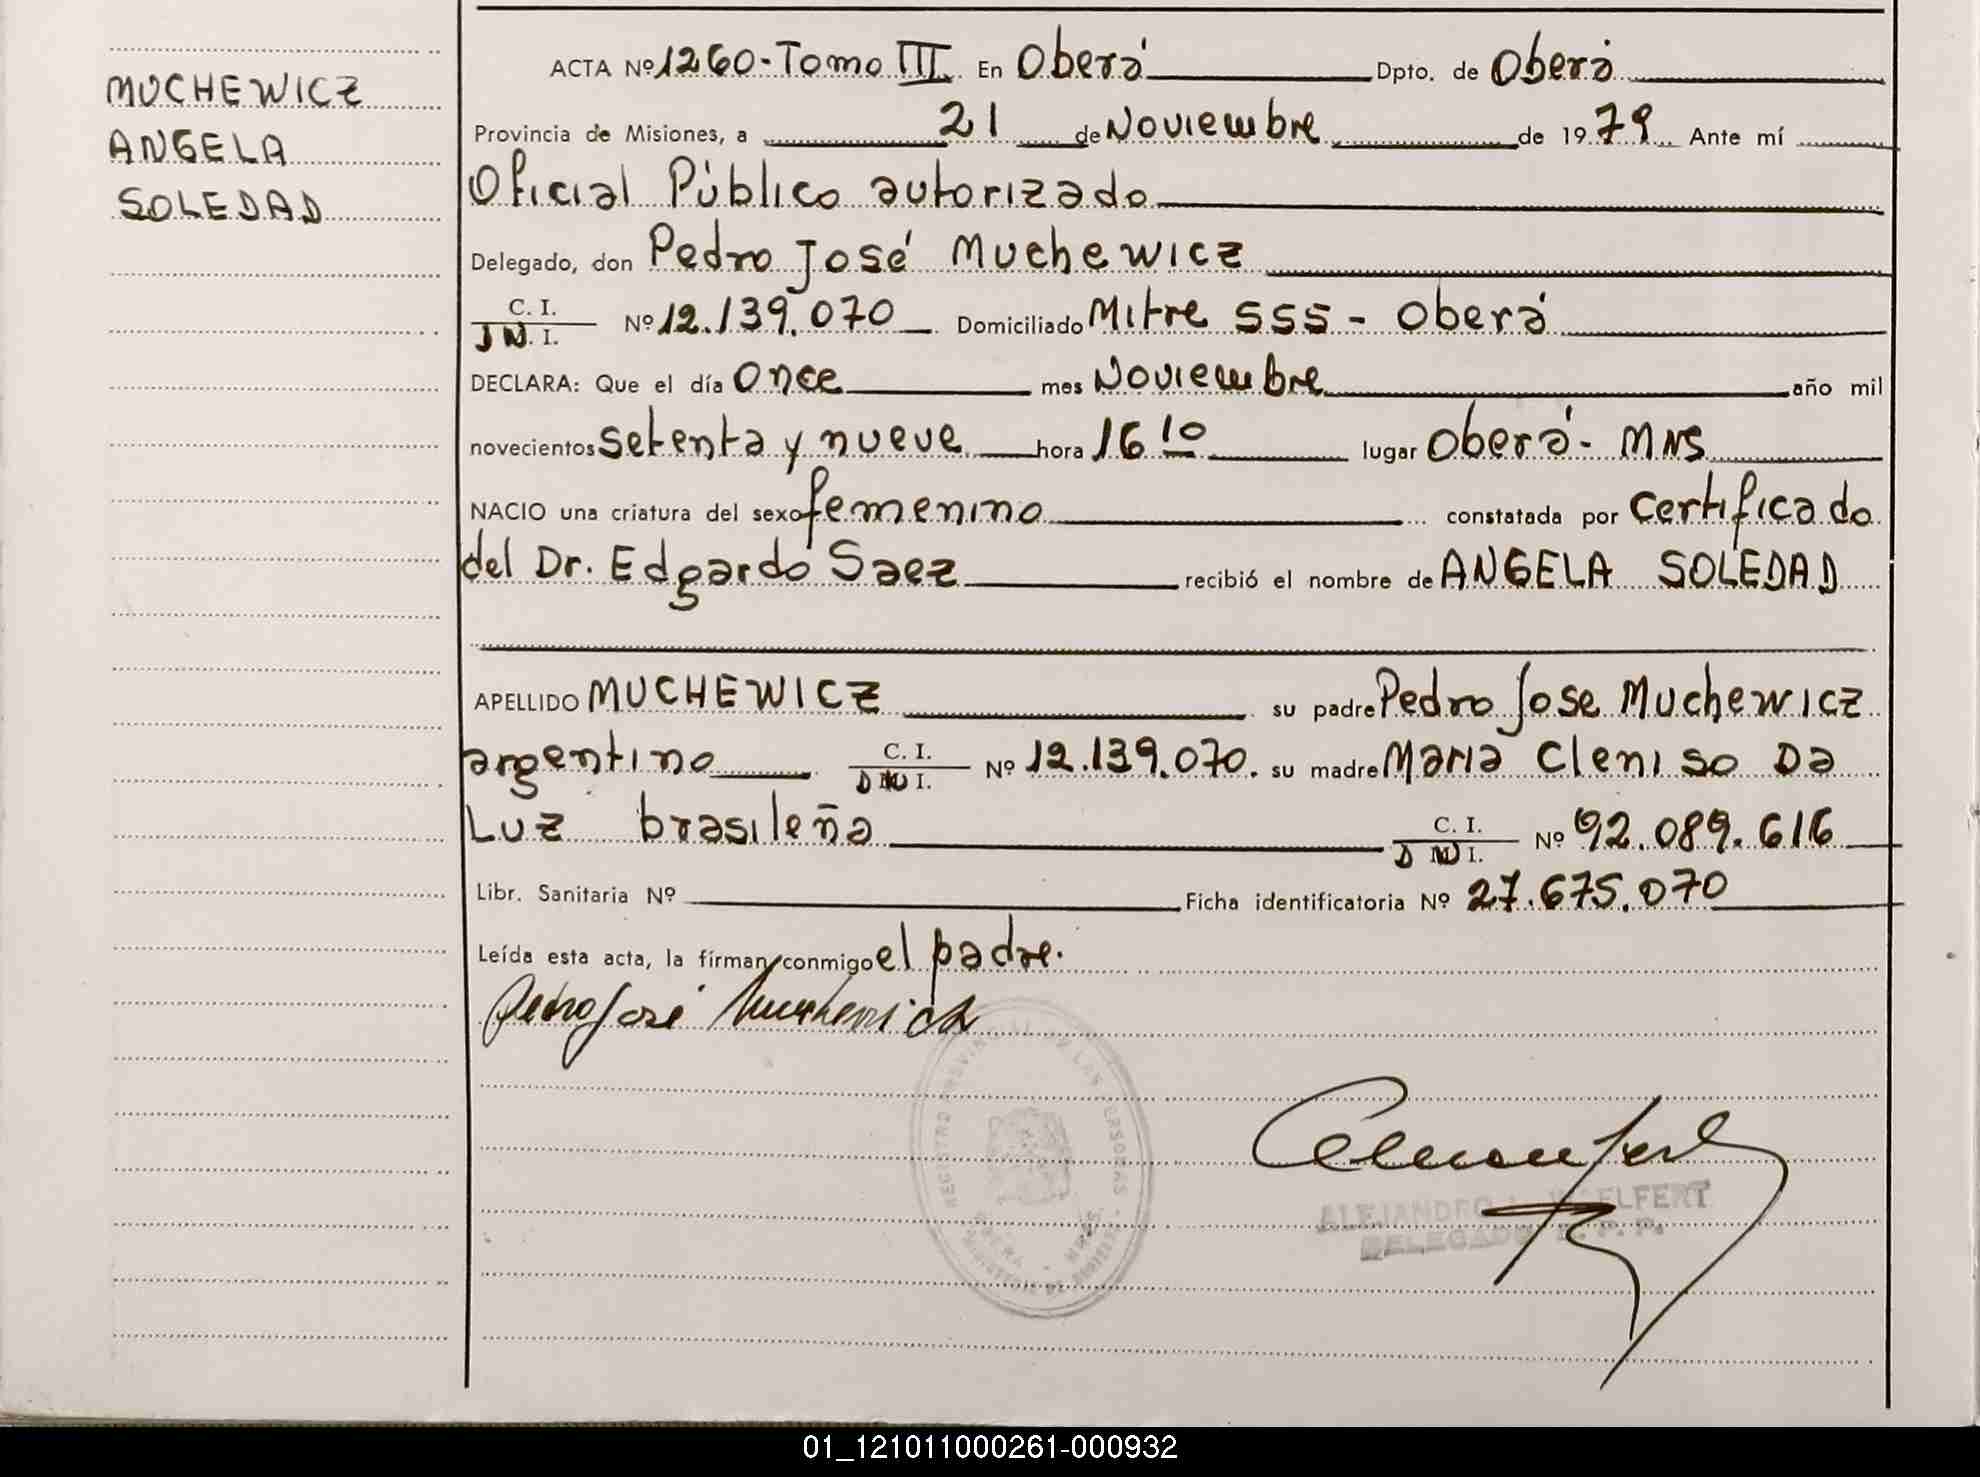 MUCHEWICZ
ANGELA
SOLEDAD
ACTA Nº 1260-Tomo III En Oberá Dpto. de Oberá
Provincia de Misiones, a 21 de Noviembre de 1979 Ante mí
Oficial Público autorizado
Delegado, don Pedro José Muchewicz
C. I.
D N. I. Nº 12.139.070 Domiciliado Mitre 555 - Oberá
DECLARA: Que el día Once mes Noviembre año mil
novecientos setenta y nueve hora 16 10 lugar Oberá - MNS
NACIO una criatura del sexo femenino constatada por certificado
del Dr. Edgardo Saez recibió el nombre de ANGELA SOLEDAD
APELLIDO MUCHEWICZ su padre Pedro Jose Muchewicz
argentino C. I. D N I. Nº 12.139.070. su madre Maria Cleniso Da
Luz brasileña C. I. D N I. Nº 92.089.616
Libr. Sanitaria Nº Ficha identificatoria Nº 27.675.070
Leída esta acta, la firman conmigo el padre.
Pedro José Muchewicz
ALEJANDRO WELFERT
DELEGADO R. P. P.
01_121011000261-000932